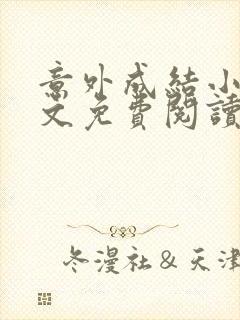 意外成結小
文免費閱讀
冬漫社&天津